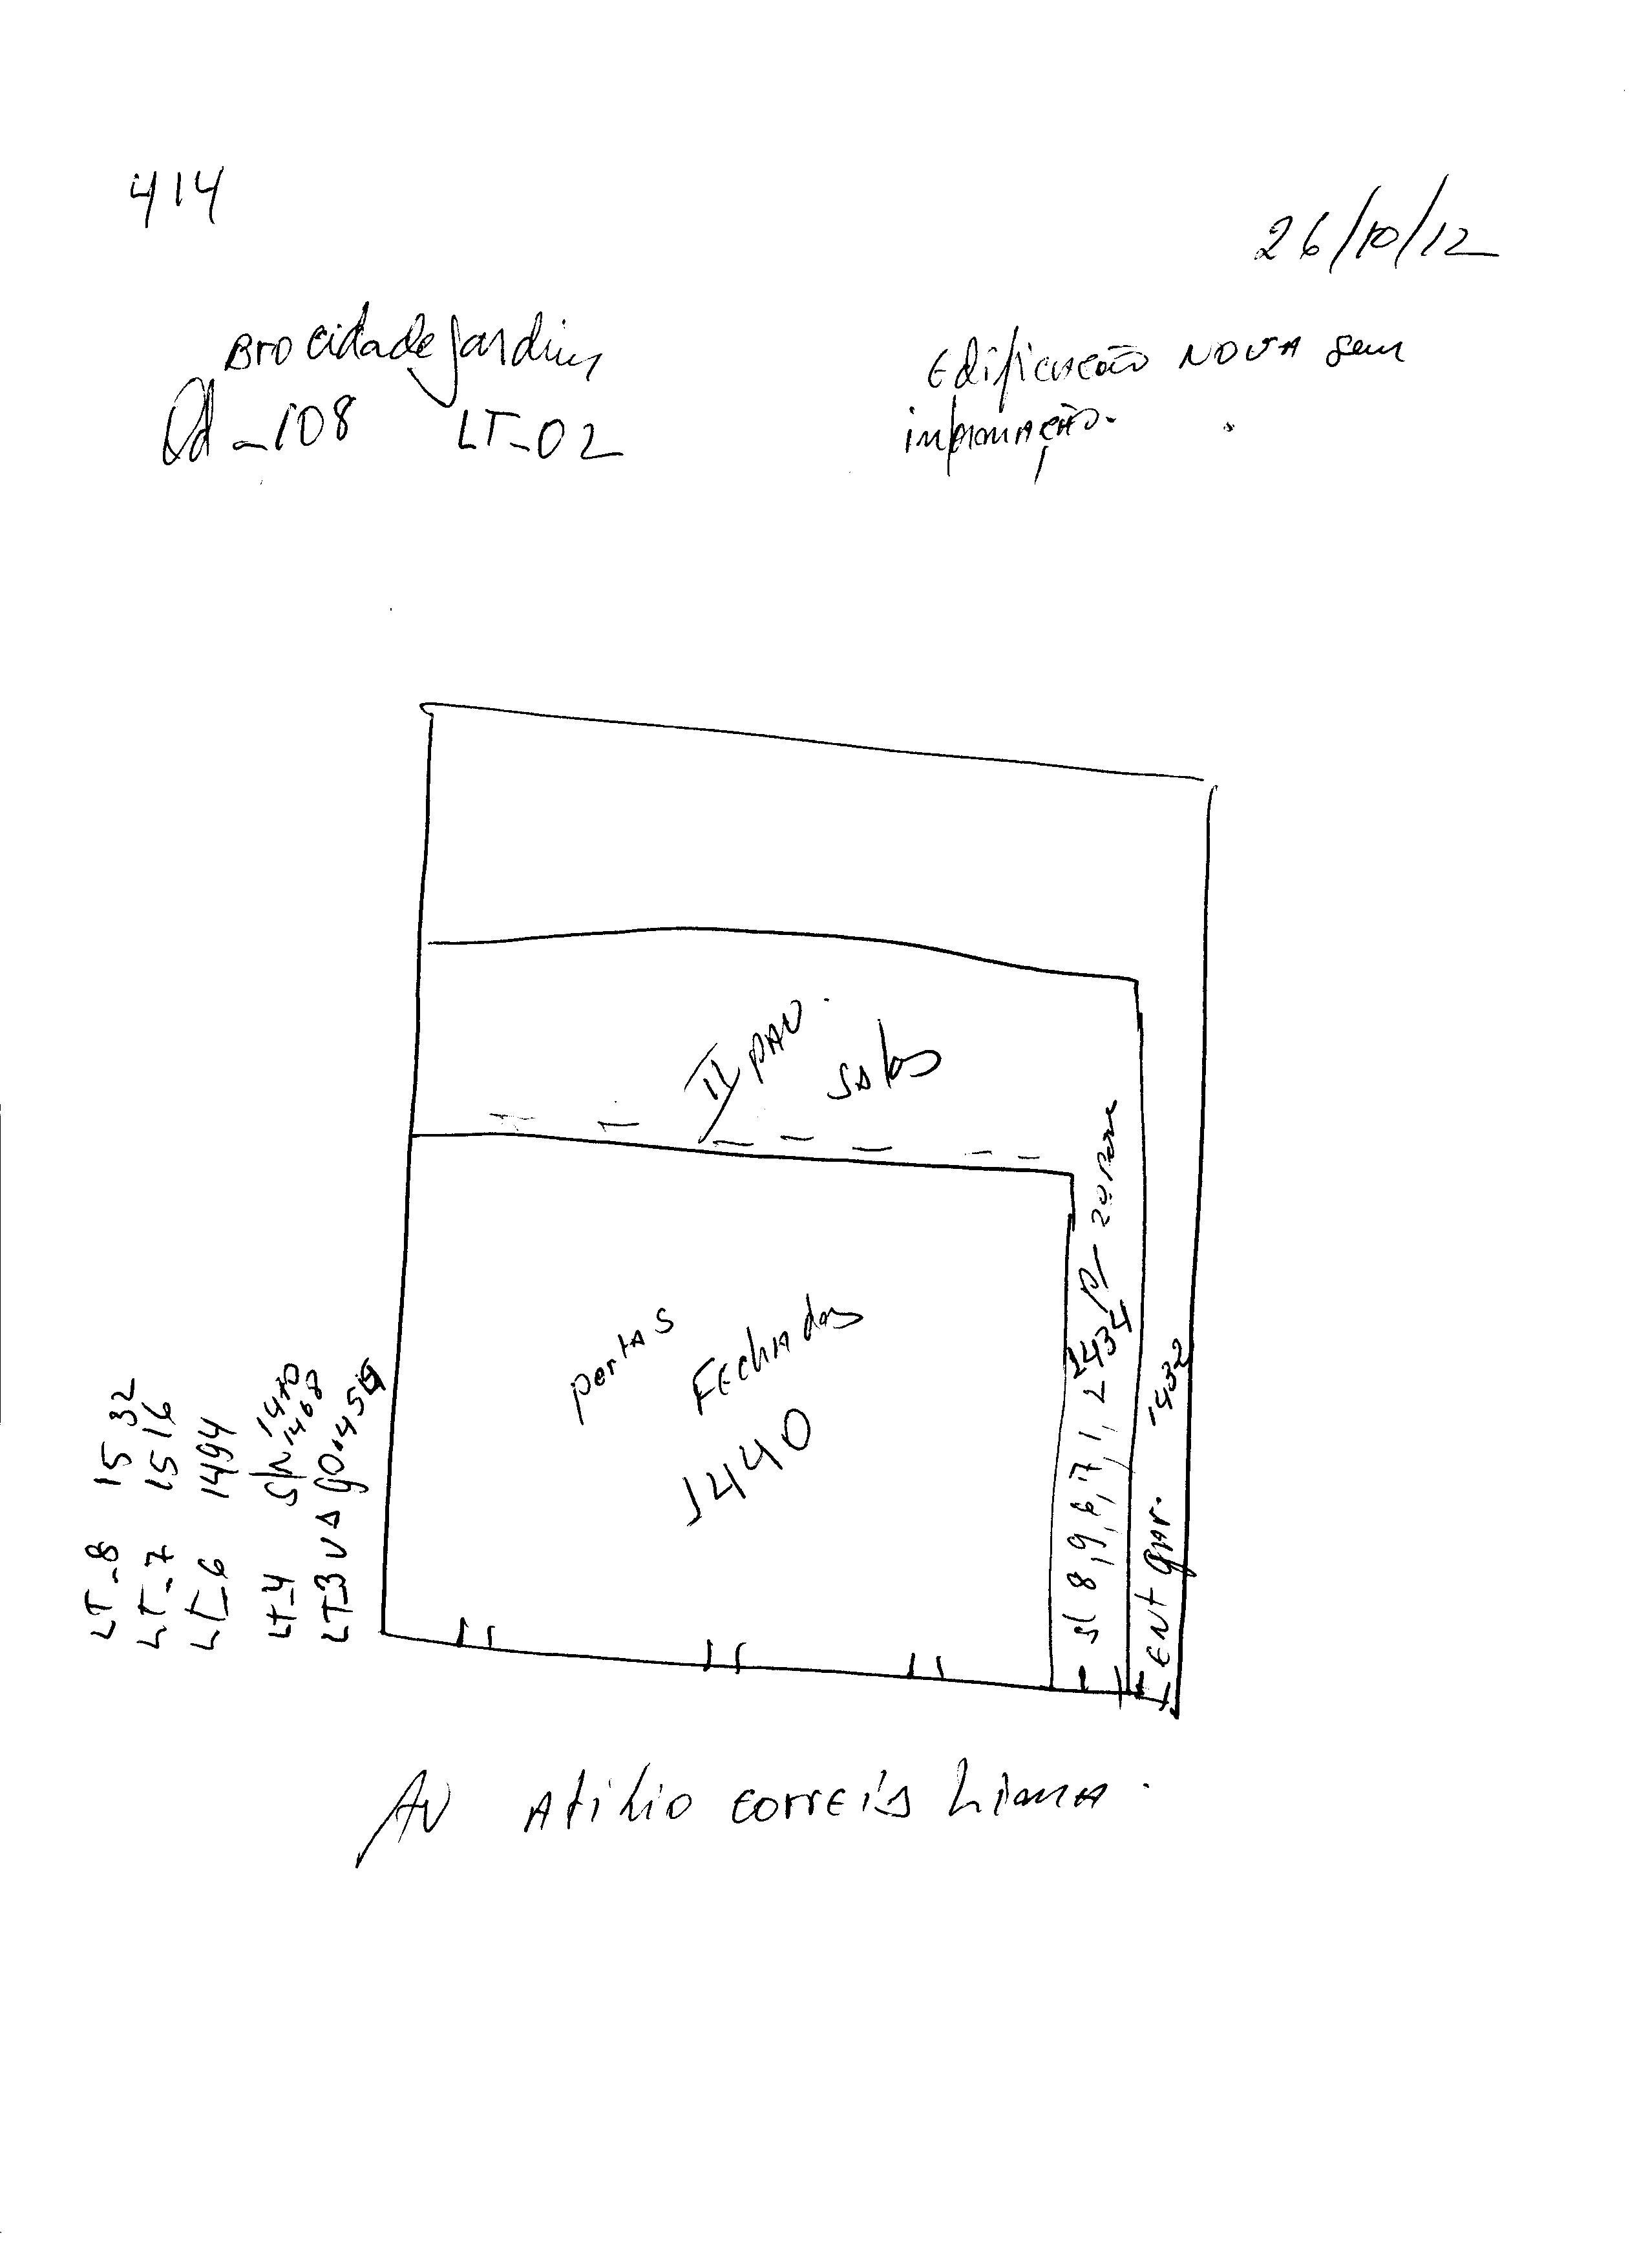 414
26/10/12
Bro cidade Jardim
Qd-108 LT-02
Edificação NOVA sem
informação.
II PAV.
salas
portas
Fechadas
1440
sl 8,9,6,7,1,2 1434 p/
ENT gar. 1432
LT-8 1532
LT-7 1516
LT-6 1494
LT-4 S/N 1470
1468
LT-3 VAgo
AV Atilio correia Lima.